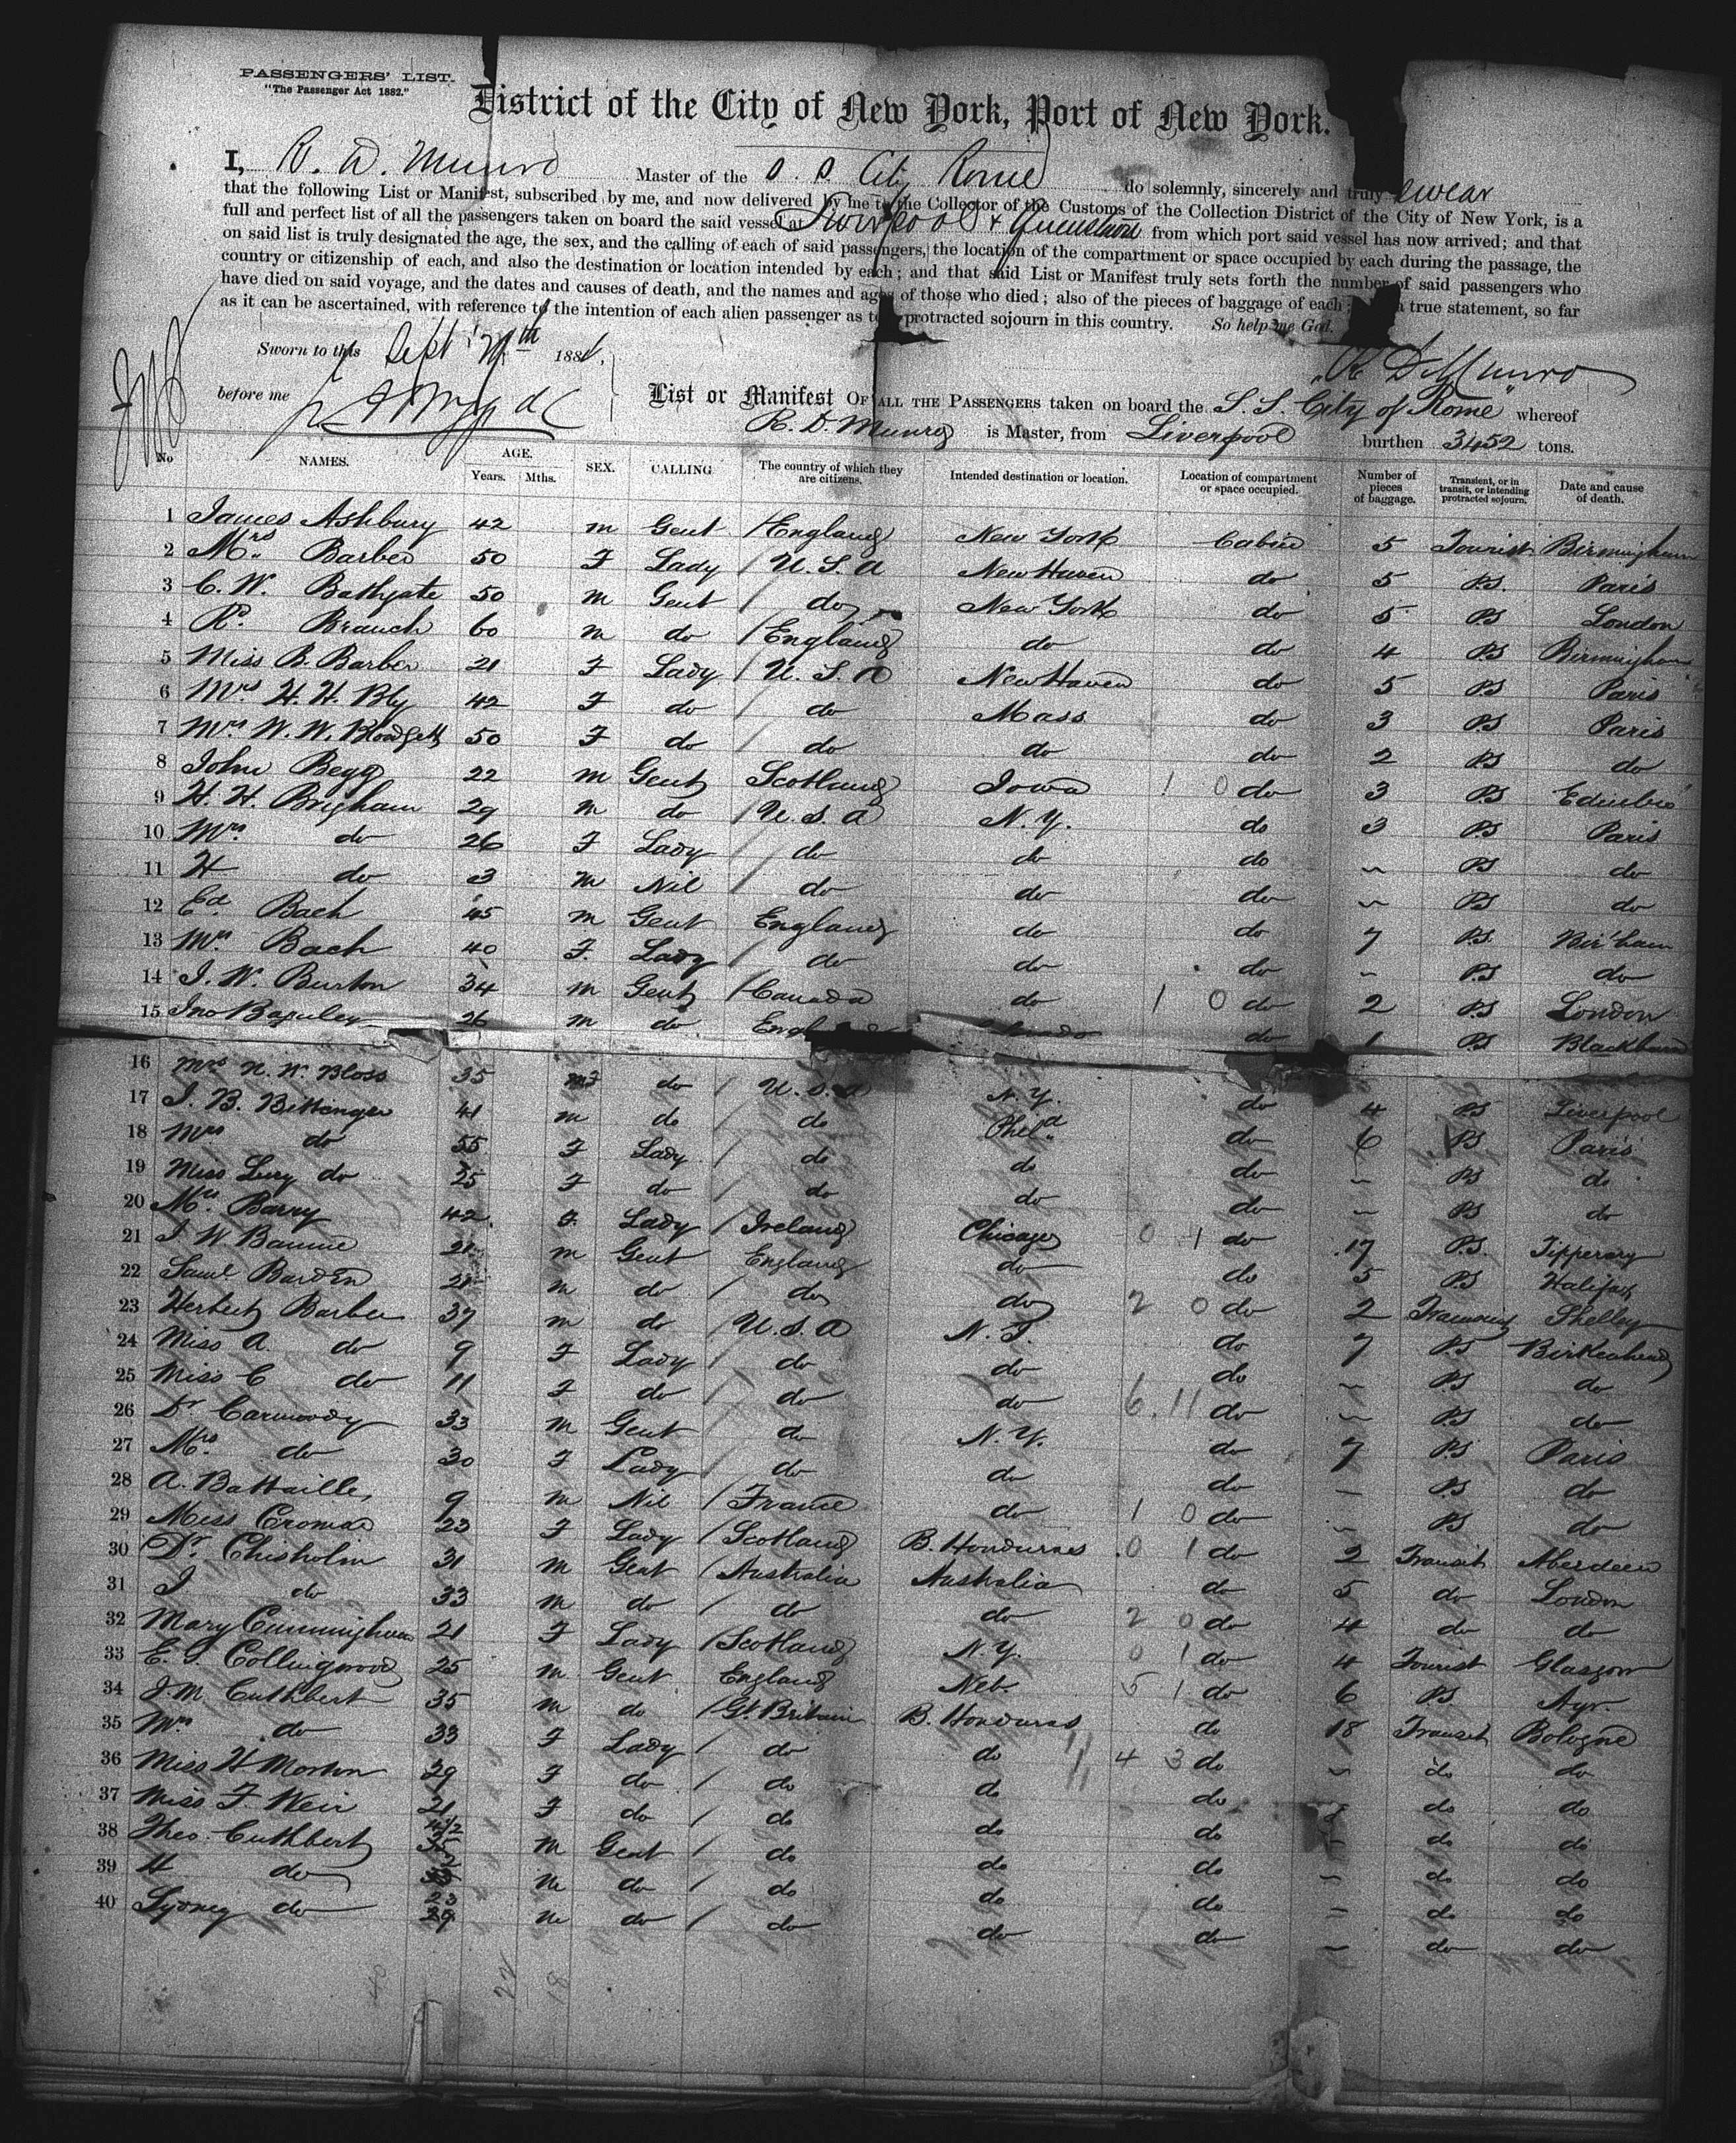 PASSENGERS' LIST.
"The Passenger Act 1882."
District of the City of New York, Port of New York.
I, R. D. Munro Master of the S. S. City Rome do solemnly, sincerely and truly swear
that the following List or Manifest, subscribed by me, and now delivered by me to the Collector of the Customs of the Collection District of the City of New York, is a
full and perfect list of all the passengers taken on board the said vessel at Liverpool & Queenstown from which port said vessel has now arrived; and that
on said list is truly designated the age, the sex, and the calling of each of said passengers, the location of the compartment or space occupied by each during the passage, the
country or citizenship of each, and also the destination or location intended by each; and that said List or Manifest truly sets forth the number of said passengers who
have died on said voyage, and the dates and causes of death, and the names and ages of those who died; also of the pieces of baggage of each; a true statement, so far
as it can be ascertained, with reference to the intention of each alien passenger as to protracted sojourn in this country. So help me God.
Sworn to this Sept 188
R D Munro
before me
List or Manifest OF ALL THE PASSENGERS taken on board the S. S. "City of Rome" whereof
R. D. Munro is Master, from Liverpool burthen 3452 tons.
No NAMES. AGE. Years. Mths. SEX. CALLING. The country of which they are citizens. Intended destination or location. Location of compartment or space occupied. Number of pieces of baggage. Transient, or in transit, or intending protracted sojourn. Date and cause of death.
1 James Ashbury 42 m Gent / England New York Cabin 5 Tourist Birmingham
2 Mrs Barber 50 F Lady / U. S. A New Haven do 5 P.S. Paris
3 C. W. Bathgate 50 m Gent / do New York do 5 PS London
4 Rd. Branch 60 m do / England do do 4 PS Birmingham
5 Miss B. Barber 21 F Lady / U. S. A New Haven do 5 PS Paris
6 Mrs H. H. Bly 42 F do / do Mass do 3 PS Paris
7 Mrs W. W. Blodgett 50 F do / do do do 2 PS do
8 John Begg 22 m Gent Scotland Iowa 1 0 do 3 PS Edinbro'
9 H. H. Brigham 29 m do / U. S. A N. Y. do 3 PS Paris
10 Mrs. do 26 F Lady / do do do ~ PS do
11 H do 3 m Nil / do do do ~ PS do
12 Ed. Bach 45 m Gent England do do 7 P.S. Bir'ham
13 Mrs. Bach 40 F. Lady / do do do ~ P.S do
14 J. W. Burton 34 m Gent / Canada do 1 0 do 2 P.S London
15 Jno 26 m do do 1 P.S Blackburn
16 Mrs N. W. Bloss 35 F do / U. S. A N. Y. do 4 PS Liverpool
17 J. B. Bittinger 41 m do do Phila do 6 PS Paris
18 Mrs do 55 F Lady / do do do ~ PS do
19 Miss Lucy do 25 F do / do do do ~ PS do
20 Mrs. Barry 42 F. Lady / Ireland Chicago 0 1 do 17 P.S. Tipperary
21 J. W. 21 m Gent England do do 5 PS Halifax
22 Saml Barden 21 m do / do do 2 0 do 2 Shelley
23 Herbert Barber 37 m do / U. S. A N. J. do 7 PS Birkenhead
24 Miss A. do 9 F Lady / do do do ~ PS do
25 Miss C do 11 F do / do do 6. 11 do ~ PS do
26 Dr Carmody 33 m Gent / do N. Y. do 7 PS Paris
27 Mrs. do 30 F Lady / do do do ~ PS do
28 A. Battaille 9 m Nil / France do 1 0 do ~ PS do
29 Miss 23 F Lady / Scotland B. Honduras 0 1 do 2 Transit Aberdeen
30 Dr. Chisholm 31 m Gent / Australia Australia do 5 do London
31 J do 33 m do / do do 2 0 do 4 do do
32 Mary Cunningham 21 F Lady / Scotland N. Y. 0 1 do 4 Tourist Glasgow
33 E. J. Collingwood 25 m Gent England Neb. 5 1 do 6 PS Ayr.
34 J. M. Cuthbert 35 m do / Gt. Britain B. Honduras do 18 Transit Bologne
35 Mrs do 33 F Lady / do do 4 3 do ~ do do
36 Miss H Morton 29 F do / do do do do do
37 Miss F. Weir 21 F do / do do do do do
38 Theo. Cuthbert m Gent / do do do ~ do do
39 H do m do / do do do ~ do do
40 Sydney do m do / do do do ~ do do
40 22 18